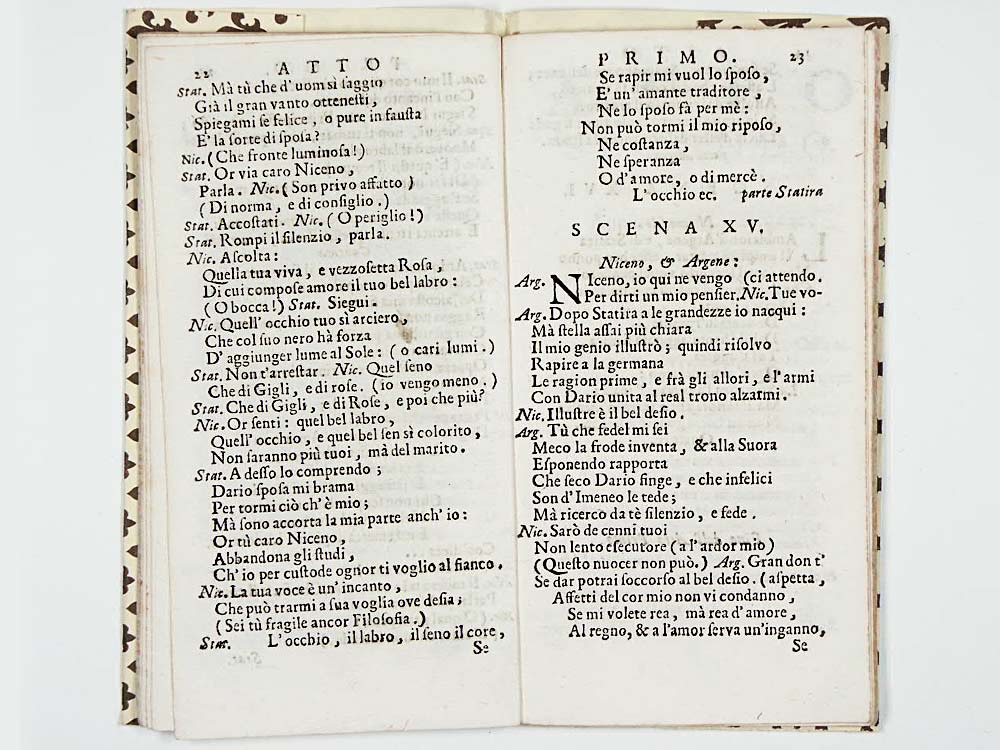 22 ATTO
Stat. Mà tù che d' uom sì saggio
Già il gran vanto ottenesti,
Spiegami se felice, o pure in fausta
E' la sorte di sposa?
Nic. (Che fronte luminosa!)
Stat. Or via caro Niceno,
Parla. Nic. (Son privo affatto)
(Di norma, e di consiglio.)
Stat. Accostati. Nic. (O periglio!)
Stat. Rompi il silenzio, parla.
Nic. Ascolta:
Quella tua viva, e vezzosetta Rosa,
Di cui compose amore il tuo bel labro:
(O bocca!) Stat. Siegui.
Nic. Quell' occhio tuo sì arciero,
Che col suo nero hà forza
D' aggiunger lume al Sole: (o cari lumi.)
Stat. Non t'arrestar. Nic. Quel seno
Che di Gigli, e di rose. (io vengo meno.)
Stat. Che di Gigli, e di Rose, e poi che più?
Nic. Or senti: quel bel labro,
Quell' occhio, e quel bel sen sì colorito,
Non saranno più tuoi, mà del marito.
Stat. A desso lo comprendo;
Dario sposa mi brama
Per tormi ciò ch' è mio;
Mà sono accorta la mia parte anch' io:
Or tù caro Niceno,
Abbandona gli studi,
Ch' io per custode ognor ti voglio al fianco.
Nic. La tua voce è un' incanto,
Che può trarmi a sua voglia ove desia;
(Sei tù fragile ancor Filosofia.)
Stat. L'occhio, il labro, il seno il core,
Se
PRIMO. 23
Se rapir mi vuol lo sposo,
E' un' amante traditore,
Ne lo sposo fà per mè:
Non può tormi il mio riposo,
Ne costanza,
Ne speranza
O d'amore, o di mercè.
L' occhio ec. parte Statira
SCENA XV.
Niceno, & Argene:
Arg. NIceno, io qui ne vengo (ci attendo.
Per dirti un mio pensier. Nic. Tue vo-
Arg. Dopo Statira a le grandezze io nacqui:
Mà stella assai più chiara
Il mio genio illustrò; quindi risolvo
Rapire a la germana
Le ragion prime, e frà gli allori, e l'armi
Con Dario unita al real trono alzarmi.
Nic. Illustre è il bel desio.
Arg. Tù che fedel mi sei
Meco la frode inventa, & alla Suora
Esponendo rapporta
Che seco Dario finge, e che infelici
Son d' Imeneo le tede;
Mà ricerco da tè silenzio, e fede.
Nic. Sarò de cenni tuoi
Non lento esecutore (a l'ardor mio)
(Questo nuocer non può.) Arg. Gran don t'
Se dar potrai soccorso al bel desio. (aspetta,
Affetti del cor mio non vi condanno,
Se mi volete rea, mà rea d'amore,
Al regno, & a l'amor serva un'inganno,
Se